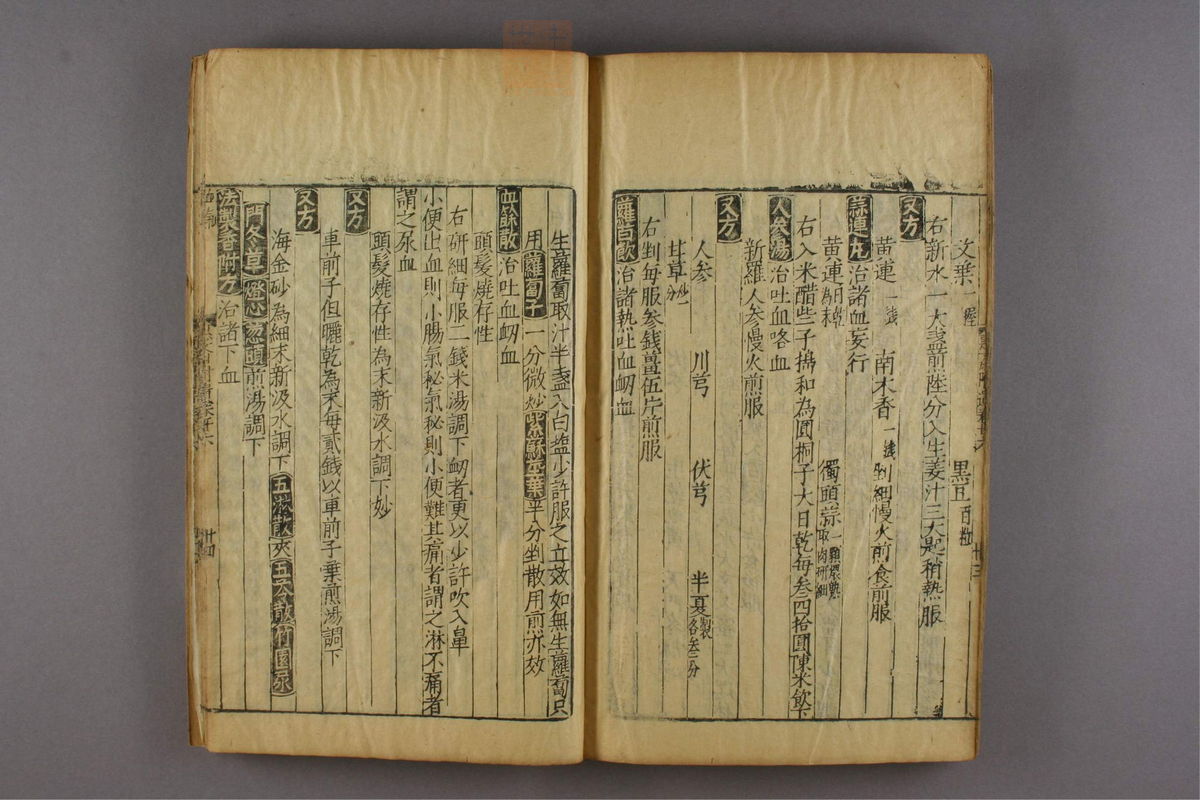 艾葉一握 黑豆百粒
右新水一大盞煎陸分入生姜汁三大匙稍熱服
又方
黃連一錢 南木香一錢 剉細慢火煎食前服
蒜連丸治諸血妄行
黃連日乾為末 獨頭蒜一顆煨熟取肉研細
右入米醋些子搗和為圓桐子大日乾每叁四拾圓陳米飲下
人參湯治吐血咯血
新羅人參慢火煎服
又方
人參 川芎 伏芎 半夏製各叁分
甘草炒一分
右剉每服參錢薑伍片煎服
蘿蔔飲治諸熱吐血衂血
生蘿蔔取汁半盞入白盐少許服之立效如無生蘿蔔只
用蘿蔔子一分微炒紫蘇莖葉半分剉散用煎亦效
血餘散治吐血衂血
頭髮燒存性
右研細每服二錢米湯調下衂者更以少許吹入鼻
小便出血則小腸氣秘氣秘則小便難其痛者謂之淋不痛者
謂之尿血
頭髮燒存性為末新汲水調下妙
又方
車前子但曬乾為末每貳錢以車前子葉煎湯調下
又方
海金砂為細末新汲水調下五淋散夾五苓散竹園荽
門冬草燈心葱頭煎湯調下
法製香附方治諸下血
卄四